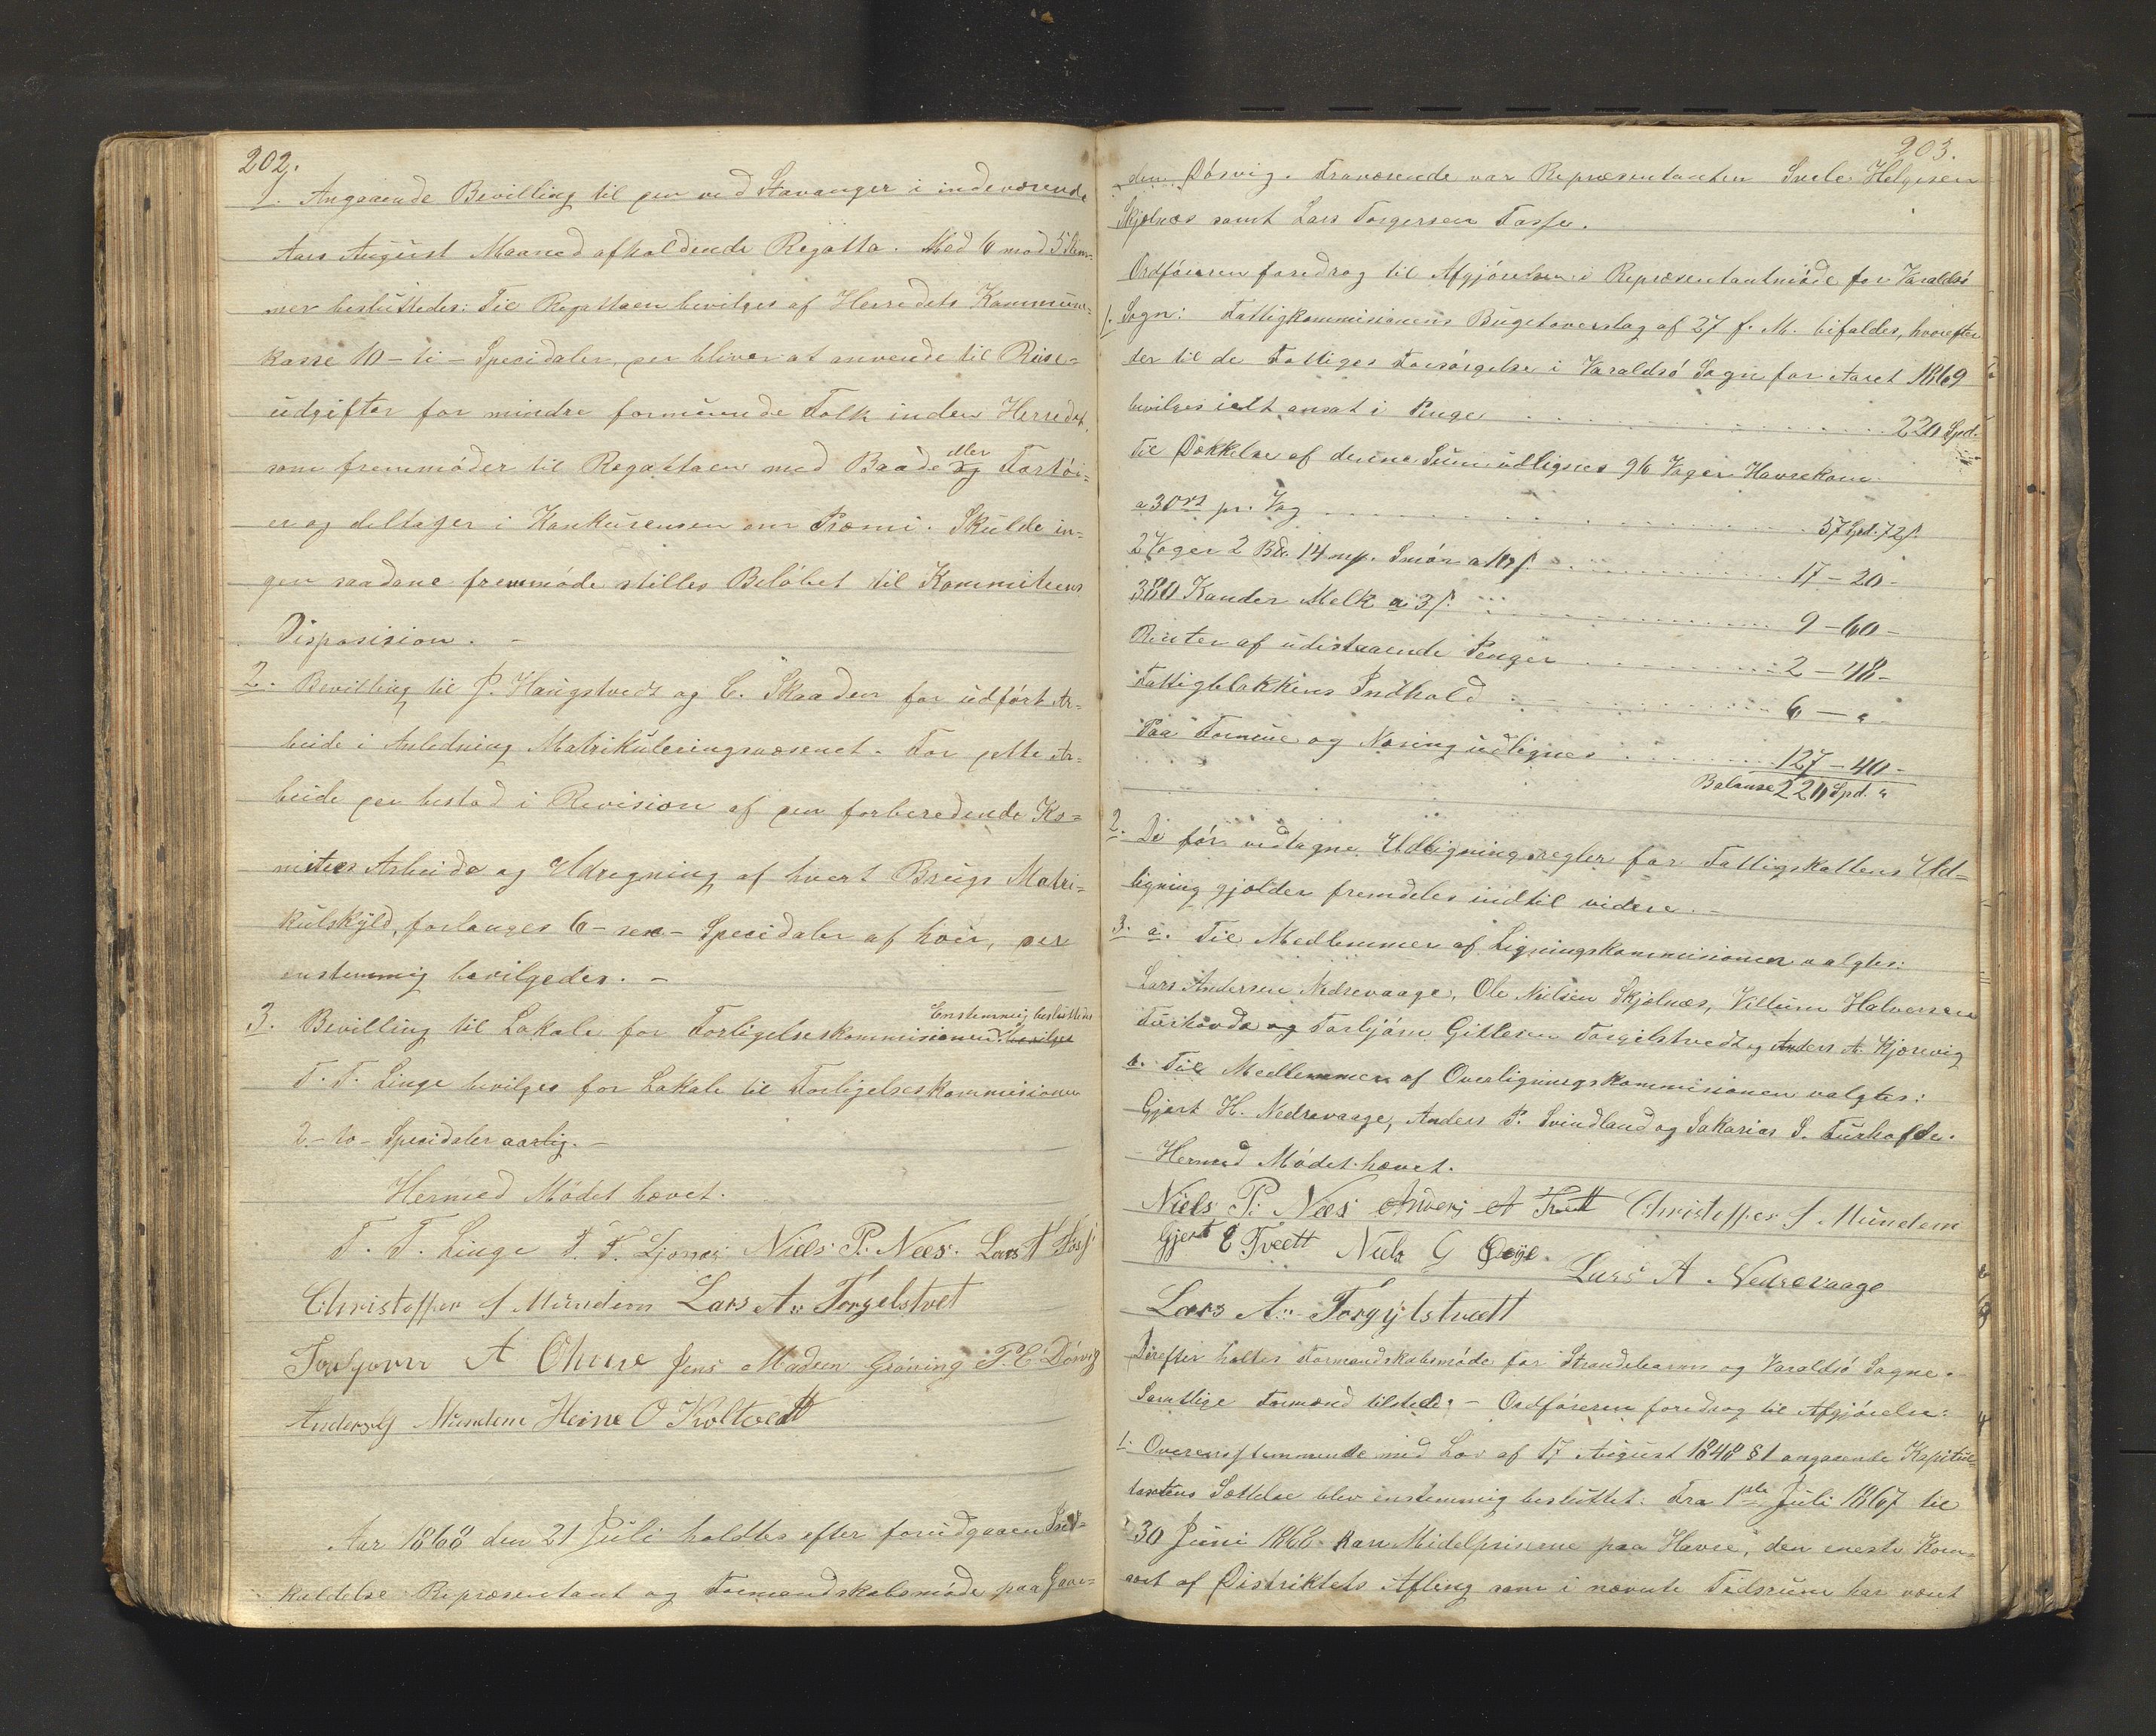 202.
1. Angaaende Bevilling til den ved Stavanger i indeværende
Aars August Maaned afholdende Regatta. Med 6 mod 5 Stem-
mer besluttedes: Til Regattaen bevilges af Herredets Kommune-
kasse 10 - ti - Specidaler, der bliver at anvende til Reise-
udgifter for mindre formuende Folk inden Herredet,
som fremmøder til Regattaen med Baade og eller Fartøi-
er og deltager i Konkurensen om Præmi. Skulde in-
gen saadane fremmøde stilles Beløbet til Kommiteens
Disposision. -
2. Bevilling til P. Haugstvedt og C. Skaaden for udført Ar-
beide i Anledning Matrikuleringsvæsenet. For dette Ar-
beide der bestod i Revision af den forberedende Ko-
mitees Arbeide og Udregning af hvert Brugs Matri-
kulskyld, forlanges 6 - sex - Specidaler af hver, der
enstemmig bevilgedes. -
3. Bevilling til Lokale for Forligelseskommisionen. bevilges Enstemmig besluttedes
T. T. Linge bevilges for Lokale til Forligelseskommisionen
2 - to - Specidaler aarlig. -
Hermed Mødet hævet.
T. T. Linge T. T. Ljones Niels P. Nees. Lars T Fosse
Christoffer S Mundem Lars A. Torgelstvet
Torbjørn A Ohune Jens Madsen Grøning P. E. Døsvig
Anders G Mundem Heine O Koltvedt
Aar 1868 den 21 Juli holdtes efter forudgaaen Ind-
kaldelse Repræsentant og Formandskabsmøde paa Gaar-
203.
den Døsvig. Fraværende var Repræsentanten Svele Helgesen
Skjelnæs samt Lars Torgersen Fosse.
Ordføreren foredrog til Afgjørelsen i Repræsentantmøde for Varaldsø
1. Sogn: Fattigkommisionens Bugetoverslag af 27 f. M. bifaldes, hvorefter
der til de Fattiges Forsørgelse i Varaldsø Sogn for Aaret 1869
bevilges ialt ansat i Penge 220 Spd.
Til Dækkelse af denne Sum udlignes 96 Vager Havrekorn
a 30 s pr. Vog 57 Spd. 72 s.
2 Voger 2 Bd. 14 mp. Smør a 17 - 20 -
380 Kander Melk a 3 s. 9 - 60 -
Renter af udestaaende Penger 2 - 48 -
Fattigblokkens Indhold 6 - "
Paa Formue og Næring udlignes 127 - 40 -
Balanse 220 Spd. "
2. De før vedtagne Udligningsregler for Fattigskattens Ud-
ligning gjælder fremdeles indtil videre. -
3. a. Til Medlemmer af Ligningskommisionen valgtes:
Lars Andersen Nedrevaage, Ole Nielsen Skjelnæs, Villum Halvorsen
og Torbjørn Gitlesen Torgilstvedt og Anders A. Kjærevig
b. Til Medlemmer af Overligningskommisionen valgtes:
Gjert H. Nedrevaage, Anders P. Svindland og Sakarias S.
Hermed Mødet hævet.
Niels P. Næs Anders A Tvett Christoffer S Mundem
Gjert E Tveett Niels G Øeye. Lars A. Nedrevaage
Lars A. Torgilstvett
Derefter holtes Formandskabsmøde for Strandebarms og Varaldsø Sogne.
Samtlige Formænd tilstede. - Ordføreren foredrog til Afgjørelse:
1. Overensstemmende med Lov af 17 August 1848 § 1 angaaende Kapitul-
takstens Sættelse blev enstemmig besluttet: Fra 1ste Juli 1867 til
30 Juni 1868 kan Midelpriserne paa Havre, den eneste Korn-
sort af Distriktets Afling som i nævnte Tidsrum har været